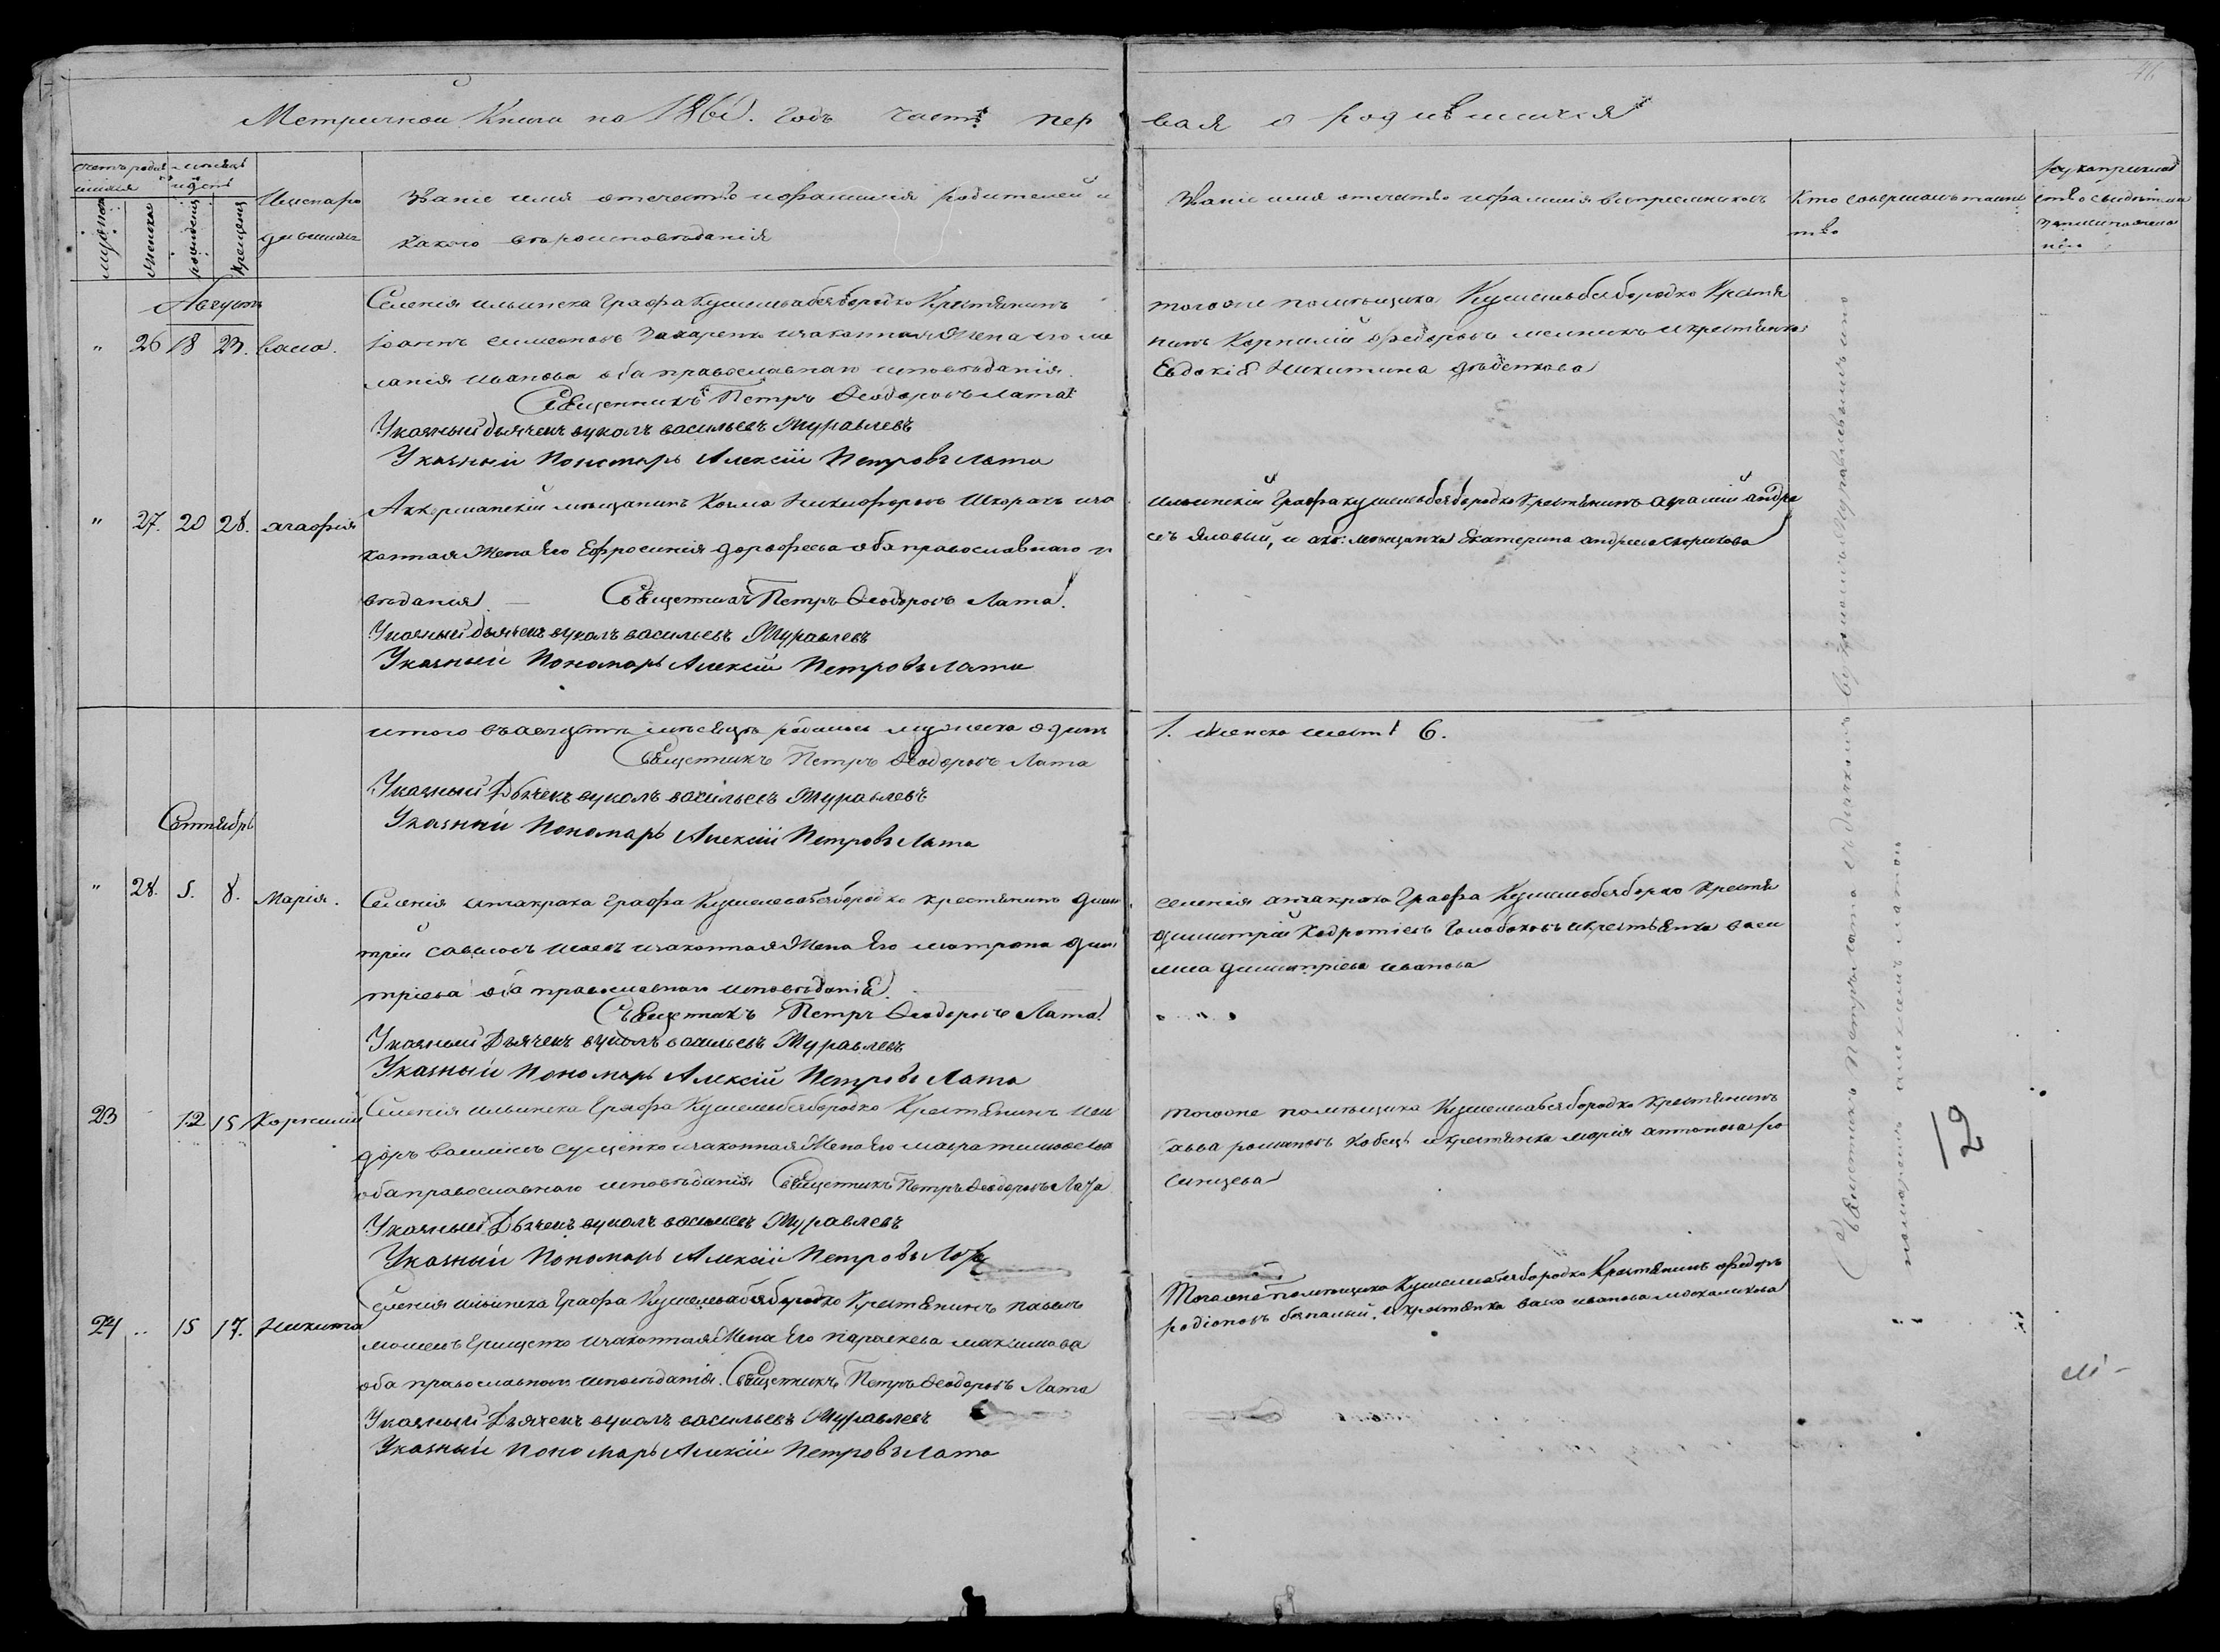 46
Метричной Книги на 1860. Годъ часть пер вая о родившихся
счетъ родив месяцъ
шихся и день
мужеска
женска
рождения
крещения
Имена ро
дившихъ
Званіе имя отечество и фамилія родителей и
какого вероисповѣданія
Званіе имя отечество и фамилія воспреемниковъ
Кто совершалъ таин
тво
рукоприклад
ство свидѣтелей
записи по жела
нію
Августъ
" 26 18 23. Васса.
Селенія ильинска Графа Кушелевабезбородко Крестянинъ
Іоаннъ симеоновъ Захаренко изаконная Жена его ме
ланія иванова оба православнаго исповѣданія.
Священникъ Петръ Феодоровъ Лата
Указный дьячекъ вуколъ васильевъ Журавлевъ
Указный Пономарь Алексій Петровъ Лата
тогоже помѣщика Кушелевбезбородко Крестя
нинъ Корнилій федоровъ мелникъ и крестянка
Евдокія Никитина дѣденкова
" 27. 20 28. агафія
Аккерманскій мѣщанинъ Косма Никифоровъ Шкоракъ иза
конная Жена Его Ефросинія дорофеева оба православнаго и
вѣданія. — Священникъ Петръ Феодоровъ Лата.
Указный дьячекъ вуколъ васильевъ Журавлевъ
Указный Пономарь Алексій Петровъ Лата
ильинскій Графа кушелевбезбородко Крестянинъ аврамій андре
евъ Яловый, и акк: мѣщанка Екатерина андреева скорикова
итого въ августѣ месяцѣ родилось мужеска одинъ 1. женска шесть 6.
Священникъ Петръ Феодоровъ Лата
Указный Дьячекъ вуколъ васильевъ Журавлевъ
Указный Пономарь Алексій Петровъ Лата
Сентябрь
" 28. 5. 8. Марія.
Селенія Графа Кушелевабезбородко крестянинъ дими
трій саввовъ изаконная Жена Его матрона дими
тріева оба православнаго исповѣданія.
Священникъ Петръ Феодоровъ Лата.
Указный Дьячекъ вуколъ васильевъ Журавлевъ
Указный Пономарь Алексій Петровъ Лата
селенія Графа Кушелевбезборко Крестя
димитрій Кодратіевъ и крестянка васи
лиса димитріева иванова
23 12 15 Корнилій
Селенія ильинска Графа Кушелевбезбородко Крестянинъ иси
доръ васильевъ сущенко изаконная Жена Его мавра
оба православнаго исповѣданія Священникъ Петръ Феодоровъ Лата
Указный Дьячекъ вуколъ васильевъ Журавлевъ
Указный Пономарь Алексій Петровъ Лата
тогоже помѣщика Кушелевабезбородко Крестянинъ
савва романовъ Кобецъ и крестянка марія антонова ро
синцева
24 .. 15 17. Никита
Селенія ильинска Графа Кушелевабезбородко Крестянинъ павелъ
Грищенко изаконная Жена Его параскева максимова
оба православнаго исповѣданія. Священникъ Петръ Феодоровъ Лата
Указный Дьячекъ вуколъ васильевъ Журавлевъ
Указный Пономарь Алексій Петровъ Лата
Тогоже помѣщика Кушелевабезбородко Крестянинъ федоръ
родіоновъ и крестянка васса иванова
Священникъ Петръ Лата съ дьячкомъ вуколомъ Журавлевымъ и по
номаремъ алексеемъ латою
12